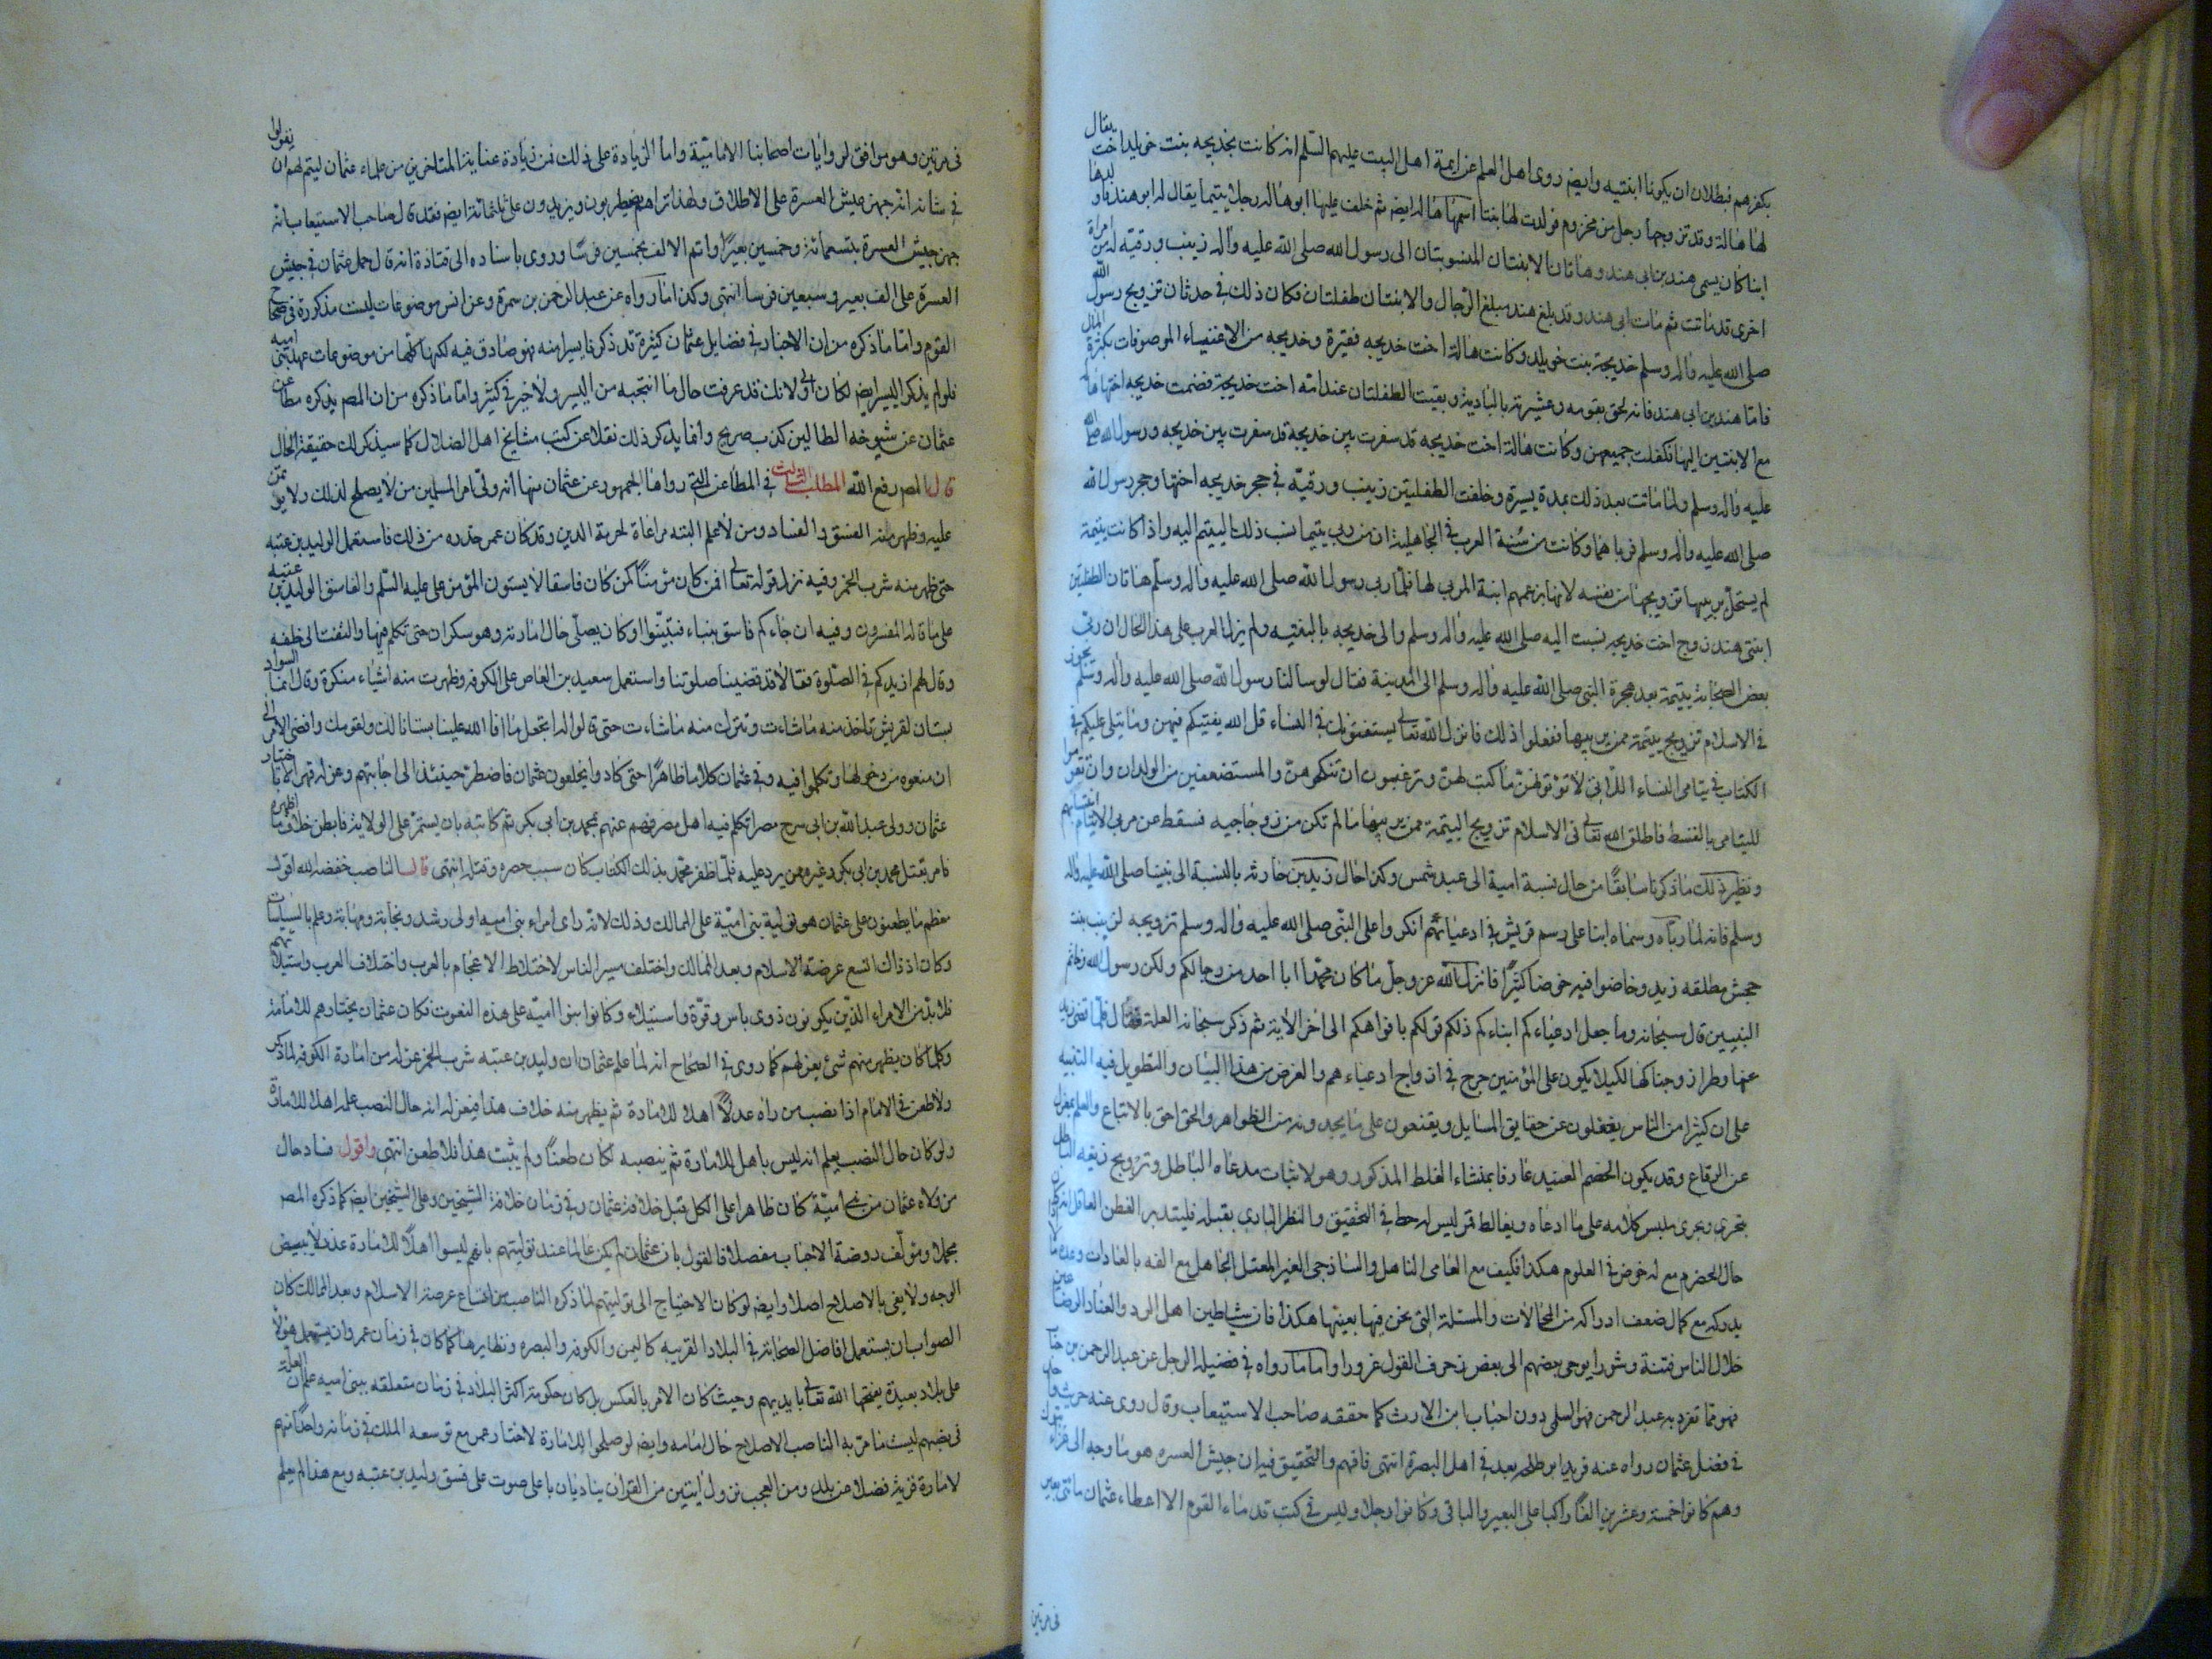 بكفرهم فبطلان ان يكونا ابنتيه وايضا روى اهل العلم عن ايمة اهل البيت عليهم السلم انه كانت بخديجه بنت خويلد اخت يقال
لها هالة وقد تزوجها رجل من مخزوم فولدت لها بنتا اسمها هاله ايضا ثم خلف عليها ابو هاله رجل يتيما يقال له ابو هند فاولدها
ابنا كان يسمى هند بن ابى هند وهاتان الابنتان المنسوبتان الى رسول الله صلى الله عليه واله زينب ورقيه له من امراة
اخرى قد ماتت ثم مات ابى هند وقد بلغ هند مبلغ الرجال والابنتان طفلتان فكان ذلك فى حدثان تزويج رسول الله
صلى الله عليه واله وسلم خديجة بنت خويلد وكانت هالة اخت خديجه فقيرة وخديجه من الاغنياء الموصوفات بكثرة المال
فاما هند بن ابى هند فانه لحق بقومه وعشيرته بالبادية وبقيت الطفلتان عند امه اخت خديجة فضمت خديجه اختها هالة
مع الابنتين اليها فكفلت جميعهن وكانت هالة اخت خديجه قد سفرت بين خديجة قد سفرت بين خديجه ورسول الله صلى الله
عليه واله وسلم ولما ماتت بعد ذلك بمدة يسيرة وخلفت الطفلتين زينب ورقيه فى حجر خديجه اختها وحجر رسول الله
صلى الله عليه واله وسلم فربا هما وكانت من سنة العرب فى الجاهلية ان من ربى يتيما نسب ذلك اليتيم اليه واذا كانت يتيمة
لم يستحل مربيها تزويجها من نفسه لانها بزعمهم ابنة المربى لها فلما ربى رسول الله صلى الله عليه واله وسلم هاتان الطفلتين
ابنتى هند زوج اخت خديجه نسبت اليه صلى الله عليه واله وسلم والى خديجه بالبنتيه ولم يزل العرب على هذا الحال ان ربى
بعض الصحابة يتيمة بعد هجرة النبى صلى الله عليه واله وسلم الى المدينة فقال لو سالنا رسول الله صلى الله عليه واله وسلم يجوز
فى الاسلام تزويج يتيمة ممن يربيها ففعلوا ذلك فانزل الله تعالى يستفتونك فى النساء قل الله يفتيكم فيهن وما يتلى عليكم فى
الكتاب فى يتامى النساء اللاتى لا تؤتونهن ما كتب لهن وترغبون ان تنكحوهن والمستضعفين من الولدان وان تقوموا
لليتامى بالقسط فاطلق الله تعالى فى الاسلام تزويج اليتيمة ممن يربيها ما لم تكن من زوجاجيه فسقط عن مربى الايتام انتسابهم
ونظير ذلك ما ذكرنا سابقا من حال نسبة امية الى عبد شمس وكذا حال زيد بن حارثه بالنسبة الى نبينا صلى الله عليه واله
وسلم فانه لما رباه وسماه ابنا على رسم قريش فى ادعيائهم انكروا على النبى صلى الله عليه واله وسلم تزويجه لزينب بنت
جحش مطلقه زيد وخاضوا فيه خوضا كثيرا فانزل الله عز وجل ما كان محمد ابا احد من رجالكم ولكن رسول الله وخاتم
النبيين قال سبحانه وما جعل ادعياءكم ابناءكم ذلكم قولكم بافواهكم الى اخر الاية ثم ذكر سبحانه العلة فقال فلما قضى زيد
عنها وطرا زوجناكها لكيلا يكون على المؤمنين حرج فى ازواج ادعياءهم والغرض من هذا البيان والتطويل فيه التنبيه
على ان كثيرا من الناس يغفلون عن حقايق المسايل ويقنعون على ما يجدونه من الظواهر والحق احق بالاتباع والعلم بمعزل
عن الرقاع وقد يكون الخصم العنيد عارفا بمنشاء الغلط المذكور وهو لاثبات مدعاه الباطل وترويج زيفه الباطل
يتحرى ويجرى ملبس كلامه على ما ادعاه ويغالط من ليس له حظ فى التحقيق والنظر البادى بقبله فليتدبر الفطن العاقل
حال الخصوم مع له خوض فى العلوم هكذا فكيف مع العامى الناهل والساذجى الغير المعتمل الجاهل مع الفه بالعادات وعدم
يدركه مع كمال ضعف ادراكه من المحالات والمسئلة التى نحن فيها بعينها هكذا فان شياطين اهل الرد والعناد
خلال الناس فتنة وشورا يوحى بعضهم الى بعض زخرف القول غرورا واما ما رواه فى فضيلة الرجل عن عبد الرحمن بن خباب
فهو مما تفرد به عبد الرحمن فهو السلمى دون احباب ابن الارث كما حققه صاحب الاستيعاب وقال روى عنه حديث
فى فضل عثمان رواه عنه فريد ابو طلحه يعد فى اهل البصرة انتهى فافهم والتحقيق فيه ان جيش العسره هو ما وجه الى غزاء تبوك
وهم كانوا خمسة وعشرين الفا راكبا على البعير والباقى وكانوا رجلا وليس فى كتب قدماء القوم الا اعطاء عثمان مائتى بعير
فى مرتين
فى مرتين وهو موافق لروايات اصحابنا الامامية واما الزيادة على ذلك فمن زيادة عنايتنا المتاخرين من علماء عثمان ليتم لهم ان يقولوا
فى شانه انه جهز جيش العسرة على الاطلاق ولهذا تراهم يضطربون ويزيدون على ثلثمائة ايضا فقد قال صاحب الاستيعاب انه
جهز جيش العسرة بتسعمائة وخمسين بعيرا واتم الالف بخمسين فرسا وروى باسناده الى قتادة انه قال حمل عثمان فى جيش
العسرة على الف بعير وسبعين فرسا انتهى وكذا ما رواه عن عبد الرحمن بن سمرة وعن انس موضوعات ليست مذكورة فى صحاح
القوم واما ما ذكره من ان الاخبار فى فضايل عثمان كثيرة قد ذكرنا يسيرا منه فهو صادق فيه لكنها كلها من موضوعات عهد بنى اميه
فلو لم يذكر اليسير ايضا لكان اولى لانك قد عرفت حال ما انتجبه من اليسير ولا خير فى كثير واما ما ذكره من ان المصنف يذكره مطاعن
عثمان عن شيوخه الطالبين كذب صريح وانما يذكر ذلك نقلا عن كتب مشايخ اهل الضلال كما سيذكر لك حقيقة الحال
قال المصنف رفع الله المطلب الثالث فى المطاعن التى رواها الجمهور عن عثمان منها انه ولى امر المسلمين من لا يصلح لذلك ولا يؤتمن
عليه وظهر منه الفسق والفساد ومن لا علم البته مراعاة لحرمة الدين وقد كان عمر حذره من ذلك فاستعمل الوليد بن عتبه
حتى ظهر منه شرب الخمر وفيه نزل قوله تعالى افمن كان مؤمنا كمن كان فاسقا لا يستون المؤمن على عليه السلم والفاسق الوليد بن عتبه
على ما قاله المفسرون وفيه ان جاءكم فاسق بنباء فتبينوا وكان يصلى حال امارته وهو سكران حتى تكلم فيها والتفت الى خلفه
وقال لهم ازيدكم فى الصلوة فقالا لا قد قضينا صلوتنا واستعمل سعيد بن العاص على الكوفه وظهرت منه اشياء منكرة وقال انما السواد
بستان لقريش تاخذ منه ما شاءت وتترك منه ما شاءت حتى قالوا له اتجعل ما افا الله علينا بستانا لك ولقومك وافضى الامر الى
ان منعوه من دخولها وتكلموا فيه وفى عثمان كلاما ظاهرا حتى كادوا يخلعون عثمان فاضطر حينئذ الى اجابتهم وعزله قهرا لا باختيار
عثمان وولى عبد الله بن ابى سرح مصر اتكلم فيه اهل مصر فصم عنهم بمحمد بن ابى بكر ثم كاتبه بان يستمر على الولاية فابطن خلاف ما اظهره
فامر بقتل محمد بن ابى بكر وغيره ممن يرد عليه فلما ظفر محمد بذلك الكتاب كان سبب حصره وقتله انتهى قال الناصب خفضه الله اقول
معظم ما يطعنون على عثمان هو تولية بنى امية على الممالك وذلك لانه راى امراء بنى اميه اولى رشد ونجابة ومهابة وعلم بالسياسات
وكان اذ ذاك اتسع عرضة الاسلام وبعد الممالك واختلف سير الناس لاختلاط الاعجام بالعرب واختلاف العرب واستيلائهم
فلا بد من الامراء الذين يكونون ذوى باس وقوة واستيلاء وكانوا بنوا امية على هذه النعوت فكان عثمان يختارهم للامامة
وكلما كان يظهر منهم شئ يعزلهم كما روى فى الصحاح انه لما علم عثمان ان وليد بن عتبه شرب الخمر عزله من امارة الكوفه لما ذكر
ولا طعن فى الامام اذا نصب من راه عدلا اهلا للامارة ثم يظهر منه خلاف هذا فيعزله انه حال النصب علمه اهلا للامارة
ولو كان حال النصب يعلم انه ليس باهل للامارة ثم ينصبه لكان طعنا ولم يثبت هذا فلا طعن انتهى واقول فساد حال
من ولاه عثمان من بنى امية كان ظاهرا على الكل قبل خلافة عثمان وفى زمان خلافة الشيخين وعلى الشيخين ايضا كما ذكره المصنف
مجملا ومؤلف روضة الاحباب مفصلا فالقول بان عثمان لم يكن عالما عند توليتهم بانهم ليسوا اهلا للامارة عذر لا يبيض
الوجه ولا يفى بالاصلاح اصلا وايضا لو كان الاحتياج الى توليتهم لما ذكره الناصب من اتساع عرصة الاسلام وبعد الممالك كان
الصواب ان يستعمل افاضل الصحابة فى البلاد القريبه كاليمن والكوفه والبصره ونظايرها كما كان فى زمان عمر وان يستعمل هؤلاء
على بلاد بعيدة يفتحها الله تعالى بايديهم وحيث كان الامر بالعكس بل كان حكومة اكثر البلاد فى زمان متعلقه ببنى اميه علم ان العلة
فى نصبهم ليست ما مر به الناصب الاصلاح حال امامه وايضا لو صلحوا للامارة لاختار عمر مع توسعه الملك فى زمانه واحدا منهم
لامارة قرية فضلا عن بلد ومن العجب نزول ايتين من القران يناديان باعلى صوت على فسق وليد بن عتبه ومع هذا لم يعلم